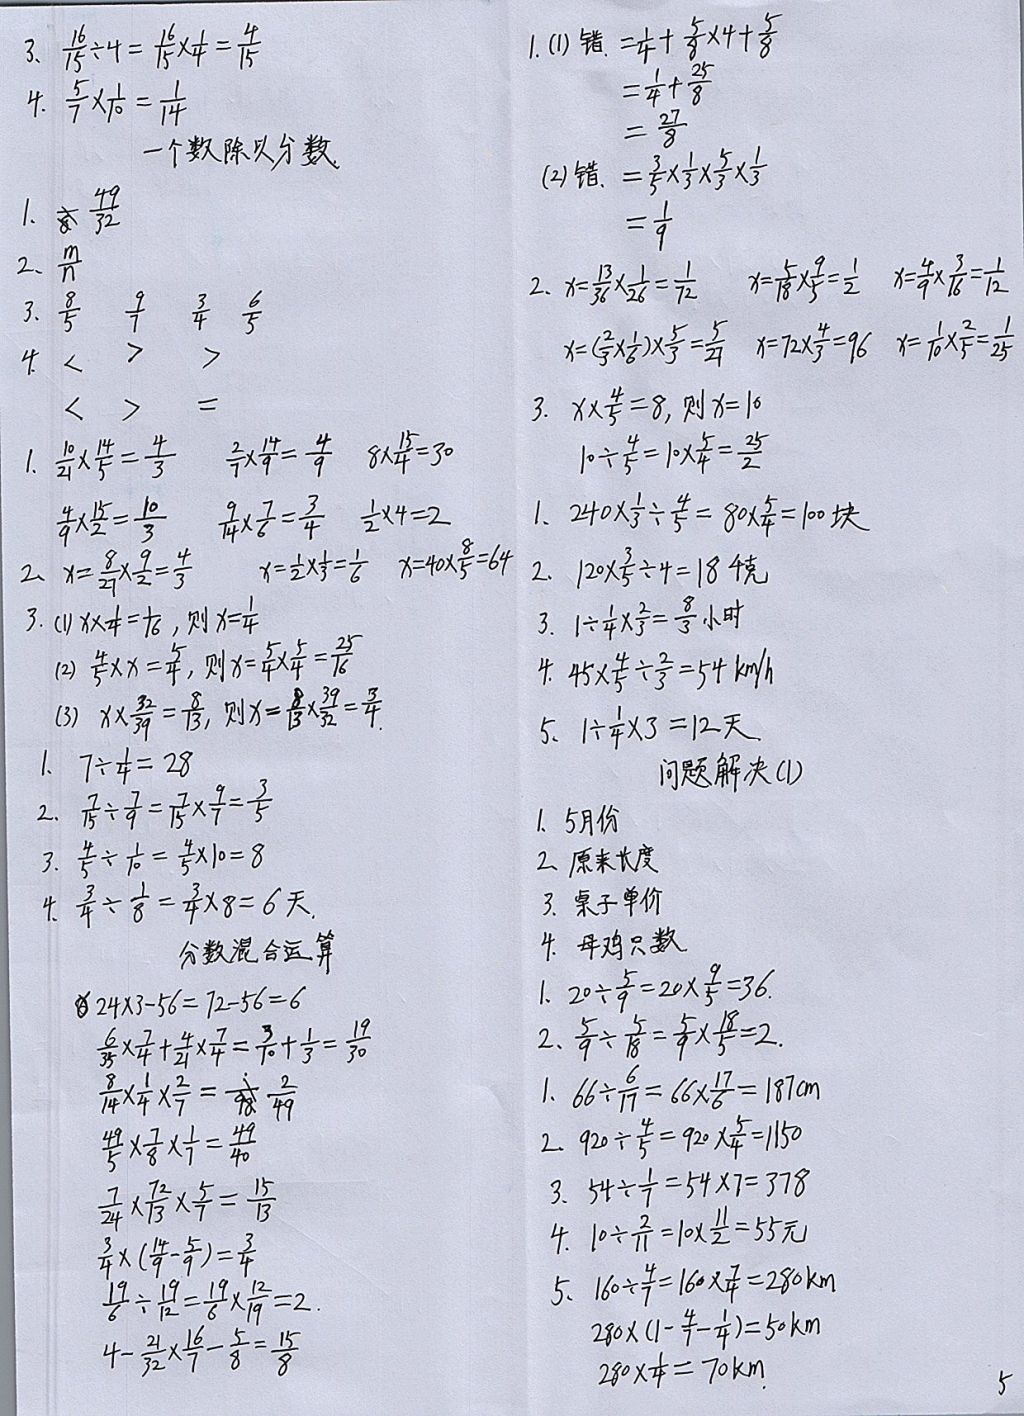 3. 16/15÷4=16/15×1/4=4/15
4. 5/7×1/10=1/14
一个数除以分数
1. 49/32
2、m/n
3. 8/5 9/7 3/4 6/5
4. < > >
< > =
1. 10/21×14/5=4/3 2/7×14/9=4/9 8×15/4=30
4/9×15/2=10/3 9/14×7/6=3/4 1/2×4=2
2、x=8/27×9/2=4/3 x=1/2×1/3=1/6 x=40×8/5=64
3. (1) x×1/4=1/16, 则x=1/4
(2) 4/5×x=5/4, 则x=5/4×5/4=25/16
(3) x×32/39=8/13, 则x=8/13×39/32=3/4.
1. 7÷1/4=28
2. 7/15÷7/9=7/15×9/7=3/5
3. 4/5÷1/10=4/5×10=8
4. 3/4÷1/8=3/4×8=6天.
分数混合运算
24×3-56=72-56=6
6/35×7/4+4/21×7/4=3/10+1/3=19/30
8/14×1/4×2/7=2/49
49/5×7/8×1/7=49/40
7/24×72/13×5/7=15/13
3/4×(14/9-5/9)=3/4
19/6÷19/12=19/6×12/19=2.
4-21/32×16/7-5/8=15/8
1. (1) 错. =1/4+5/8×4+5/8
=1/4+25/8
=27/8
(2) 错. =3/5×1/3×5/3×1/3
=1/9
2. x=13/36×1/26=1/72 x=5/18×9/5=1/2 x=4/9×3/16=1/12
x=(2/3×1/6)×5/3=5/27 x=72×4/3=96 x=1/10×2/5=1/25
3. x×4/5=8, 则x=10
10÷4/5=10×5/4=25/2
1. 240×1/3÷4/5=80×5/4=100块
2. 120×3/5÷4=18千克
3. 1÷1/4×2/3=8/3小时
4. 45×4/5÷2/3=54km/h
5、1÷1/4×3=12天.
问题解决(1)
1. 5月份
2、原来长度
3. 桌子单价
4. 母鸡只数
1. 20÷5/9=20×9/5=36.
2、5/9÷5/18=5/9×18/5=2.
1. 66÷6/17=66×17/6=187cm
2. 920÷4/5=920×5/4=1150
3. 54÷1/7=54×7=378
4. 10÷2/11=10×11/2=55元
5、160÷4/7=160×7/4=280km
280×(1-4/7-1/4)=50km
280×1/4=70km.
5